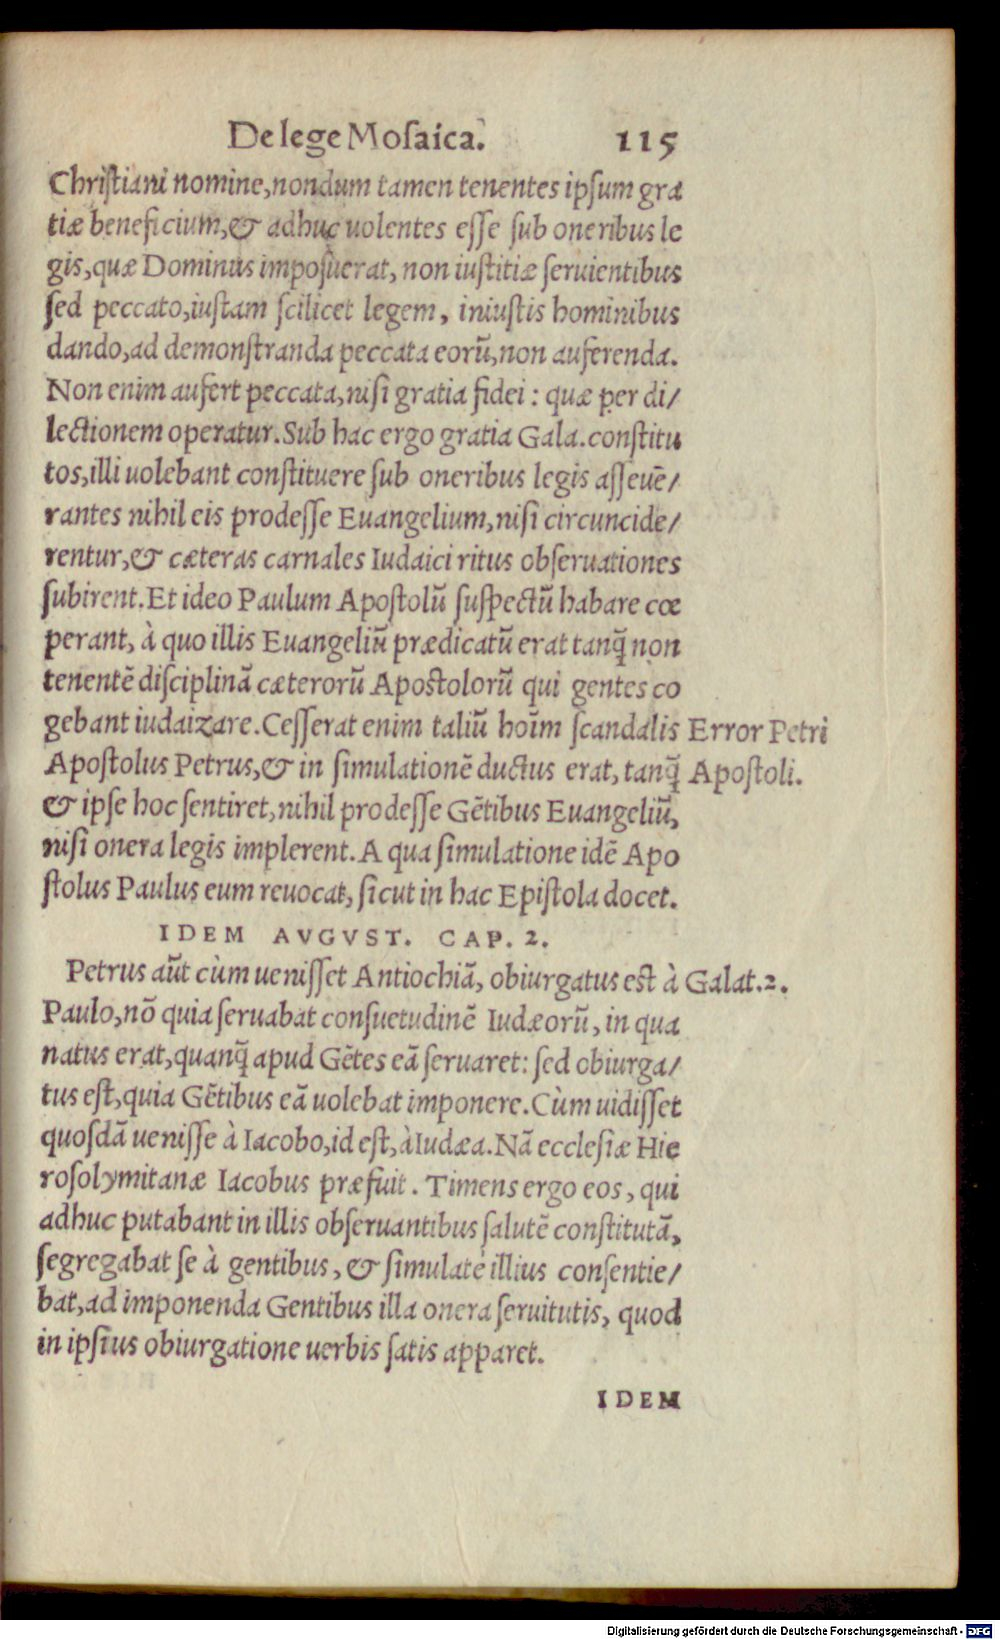 De lege Mosaica. 115
Christiani nomine, nondum tamen tenentes ipsum gra
tiæ beneficium, & adhuc uolentes esse sub oneribus le
gis, quæ Dominus imposuerat, non iustitiæ seruientibus
sed peccato, iustam scilicet legem, iniustis hominibus
dando, ad demonstranda peccata eorũ, non auferenda.
Non enim aufert peccata, nisi gratia fidei: quæ per di/
lectionem operatur. Sub hac ergo gratia Gala. constitu
tos, illi uolebant constituere sub oneribus legis asseuẽ/
rantes nihil eis prodesse Euangelium, nisi circuncide/
rentur, & cæteras carnales Iudaici ritus obseruationes
subirent. Et ideo Paulum Apostolũ suspectũ habare cœ
perant, à quo illis Euangeliũ prædicatũ erat tanq̃ non
tenentẽ disciplinã cæterorũ Apostolorũ qui gentes co
gebant iudaizare. Cesserat enim taliũ hoĩm scandalis Error Petri
Apostolus Petrus, & in simulationẽ ductus erat, tanq̃ Apostoli.
& ipse hoc sentiret, nihil prodesse Gẽtibus Euangeliũ,
nisi onera legis implerent. A qua simulatione idẽ Apo
stolus Paulus eum reuocat, sicut in hac Epistola docet.
IDEM AVGVST. CAP. 2.
Petrus aũt cùm uenisset Antiochiã, obiurgatus est à Galat. 2.
Paulo, nõ quia seruabat consuetudinẽ Iudæorũ, in qua
natus erat, quanq̃ apud Gẽtes eã seruaret: sed obiurga/
tus est, quia Gẽtibus eã uolebat imponere. Cùm uidisset
quosdã uenisse à Iacobo, id est, à Iudæa. Nã ecclesiæ Hie
rosolymitanæ Iacobus præfuit. Timens ergo eos, qui
adhuc putabant in illis obseruantibus salutẽ constitutã,
segregabat se à gentibus, & simulatẽ illius consentie/
bat, ad imponenda Gentibus illa onera seruitutis, quod
in ipsius obiurgatione uerbis satis apparet.
IDEM
Digitalisierung gefördert durch die Deutsche Forschungsgemeinschaft - DFG